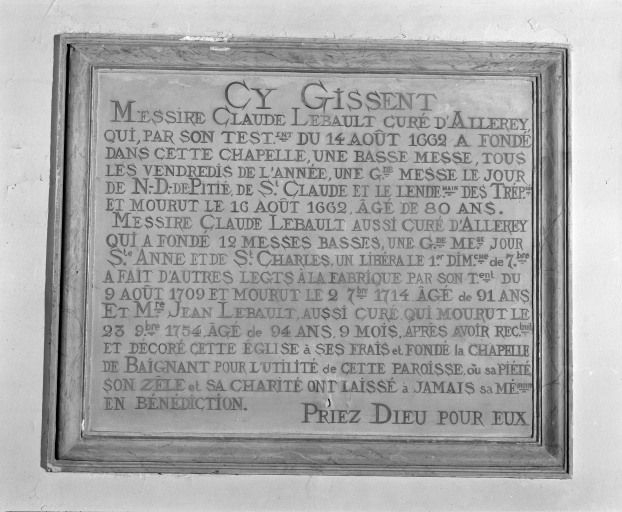 CY GISSENT
MESSIRE CLAUDE LEBAULT CURÉ D'ALLEREY
QUI, PAR SON TEST.ENT DU 14 AOÛT 1662 A FONDÉ
DANS CETTE CHAPELLE, UNE BASSE MESSE, TOUS
LES VENDREDIS DE L'ANNÉE, UNE G.DE MESSE LE JOUR
DE N.-D.-DE-PITIÉ, DE S.T CLAUDE ET LE LENDE.MAIN DES TRÉP.SÉS
ET MOURUT LE 16 AOÛT 1662, ÂGÉ DE 80 ANS.
MESSIRE CLAUDE LEBAULT AUSSI CURÉ D'ALLEREY
QUI A FONDÉ 12 MESSES BASSES, UNE G.DE MES.SE JOUR
S.te ANNE ET DE S.t CHARLES, UN LIBÉRA LE 1.er DIM.CHE de 7.bre
A FAIT D'AUTRES LEGTS À LA FABRIQUE PAR SON T.ent DU
9 AOÛT 1709 ET MOURUT LE 2 7bre 1714 ÂGÉ de 91 ANS
ET M.re JEAN LEBAULT, AUSSI CURÉ QUI MOURUT LE
23 9.bre 1754, ÂGÉ de 94 ANS, 9 MOIS, APRÈS AVOIR REC.
ET DÉCORÉ CETTE ÉGLISE à SES FRAIS et FONDÉ la CHAPELLE
DE BAIGNANT POUR L'UTILITÉ de CETTE PAROISSE, où sa PIÉTÉ
SON ZÈLE et SA CHARITÉ ONT LAISSÉ à JAMAIS sa MÉ.moire
EN BÉNÉDICTION.
PRIEZ DIEU POUR EUX